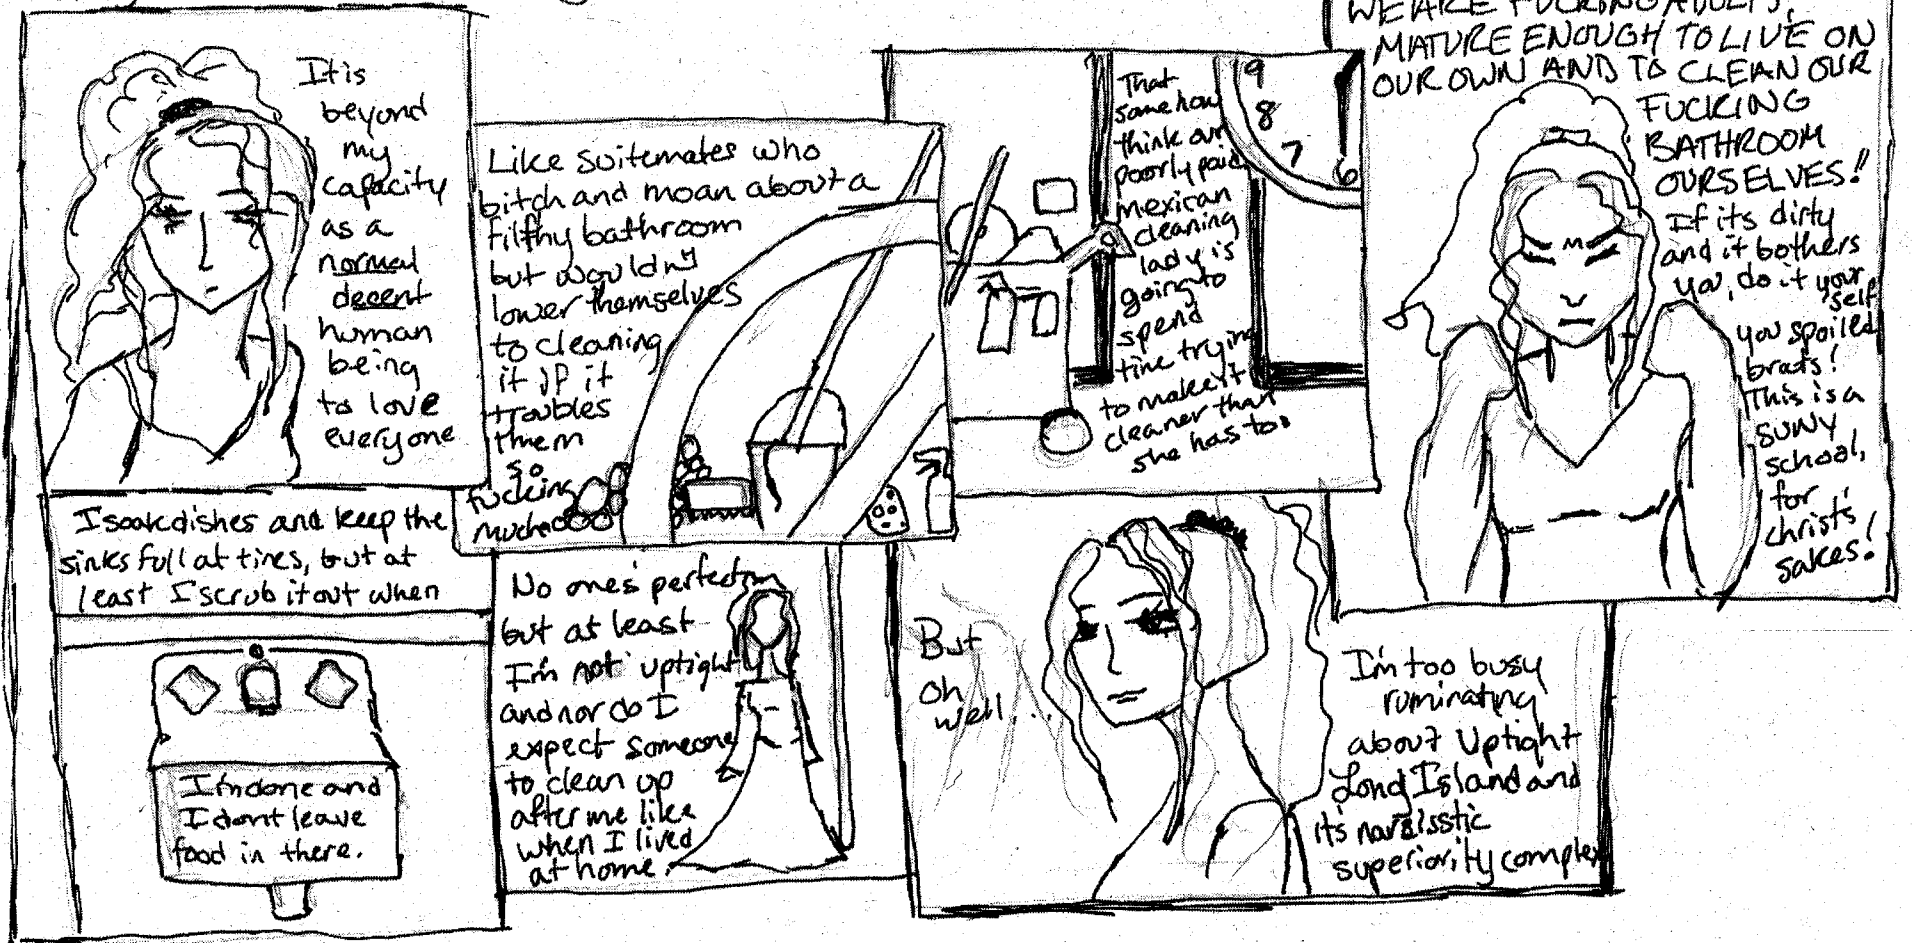 It is
beyond
my
capacity
as a
normal
decent
human
being
to love
everyone
Like suitemates who
bitch and moan about a
filthy bathroom
but wouldn't
lower themselves
to cleaning
it if it
troubles
them
so
fucking
much
That
somehow
think our
poorly paid
mexican
cleaning
lady is
going to
spend
time trying
to make it
cleaner than
she has to.
9
8
7
6
WE ARE FUCKING ADULTS,
MATURE ENOUGH TO LIVE ON
OUR OWN AND TO CLEAN OUR
FUCKING
BATHROOM
OURSELVES!!
If its dirty
and it bothers
you, do it your
self
you spoiled
brats!
This is a
SUNY
school,
for
christ's
sakes!
I soak dishes and keep the
sinks full at times, but at
least I scrub it out when
I'm done and
I dont leave
food in there.
No one's perfect
but at least
I'm not uptight
and nor do I
expect someone
to clean up
after me like
when I lived
at home.
But
oh
well...
I'm too busy
ruminating
about Uptight
Long Island and
it's narsisstic
superiority complex